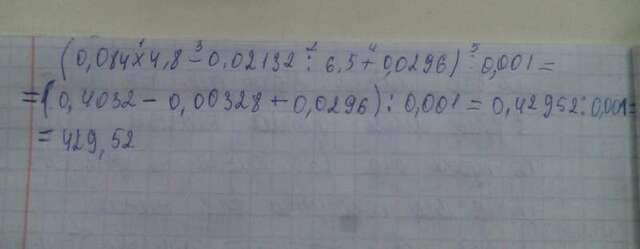 (0,084 × 4,8 - 0,02132 : 6,5 + 0,0296) : 0,001 =
= (0,4032 - 0,00328 + 0,0296) : 0,001 = 0,42952 : 0,001 =
= 429,52